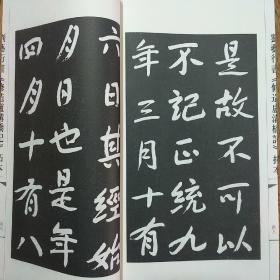 是故不可以
不記正統九
年三月十有
六日其經始
月日也是年
四月十有八